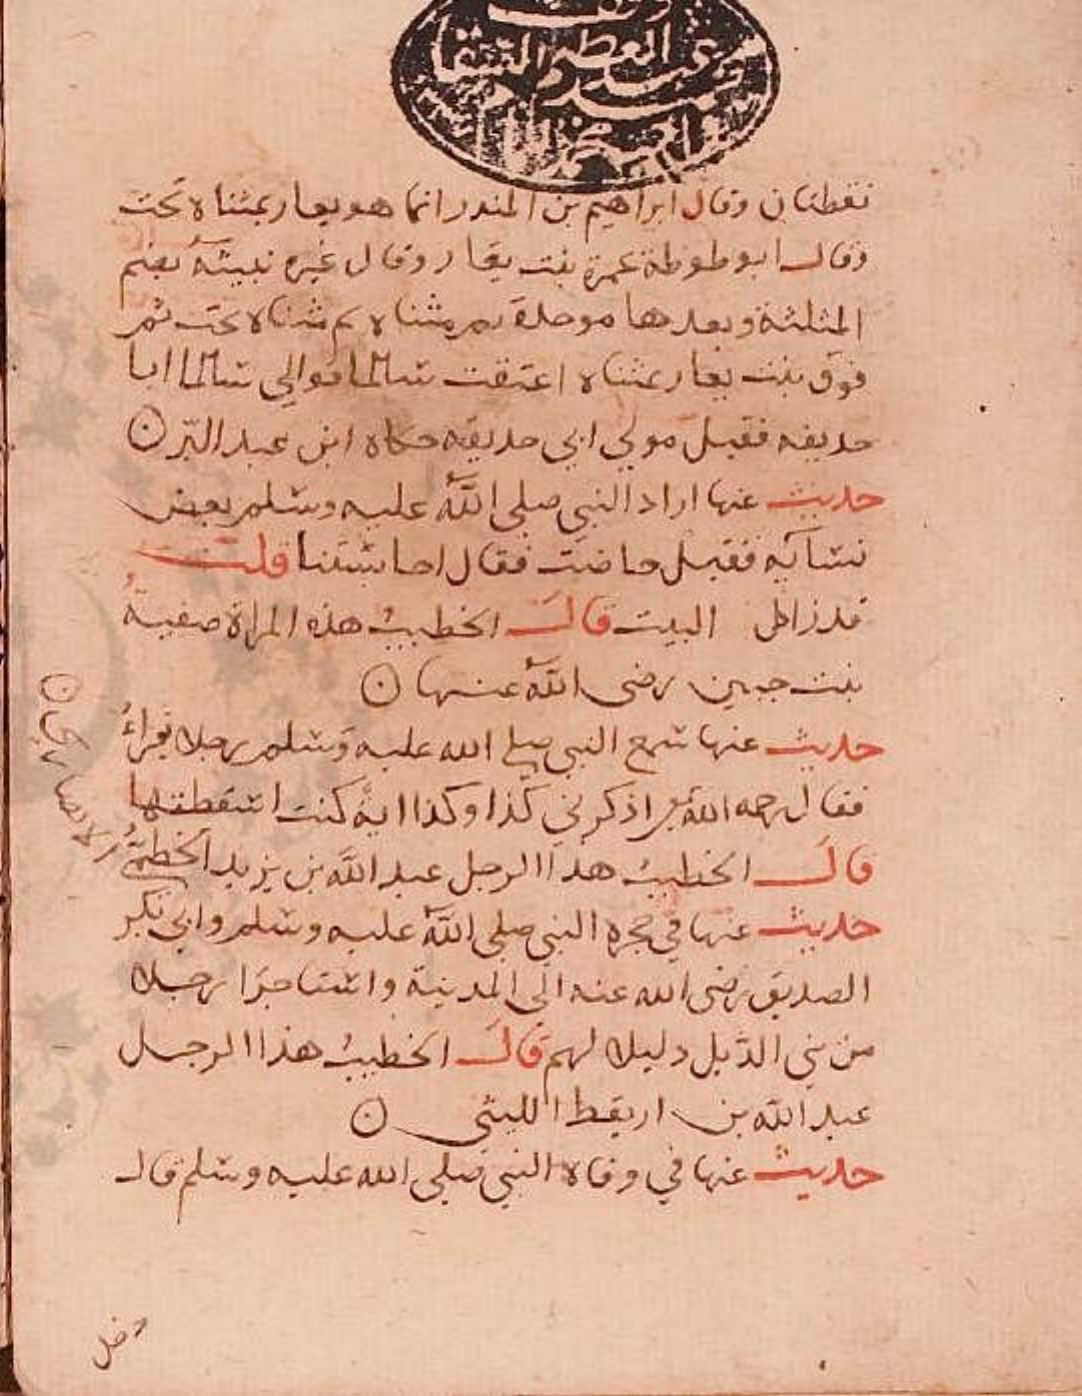 نقطتان وقال ابراهيم بن المنذر انما هو يعار بمثناه تحت
وقال ابو طوطة عمرة بنت يعار وقال غيره ثبيته بضم
المثلثة وبعدها موحدة ثم مثناه تحت ثم
فوق بنت يعار بمثناه اعتقت سالما فوالي سالما ابا
حديفه فقيل مولي ابي حديفه حكاه ابن عبد البر ن
حديث عنها اراد النبي صلي الله عليه وسلم بعض
نسايه فقيل حاضت فقال احابستنا قلت
قدر اهل البيت قال الخطيب هذه المراة صفية
بنت حيي رضي الله عنها ن
حديث عنها سمع النبي صلي الله عليه وسلم رجلا يقراء
فقال رحمه الله لقد اذكرني كذا وكذا اية كنت اسقطتها
قال الخطيب هذا الرجل عبد الله بن يزيد الخطمي
الانصاري ن
حديث عنها في هجرة النبي صلي الله عليه وسلم وابي بكر
الصديق رضي الله عنه الي المدينة واستاجرا رجلا
من بني الديل دليلا لهم قال الخطيب هذا الرجل
عبد الله بن اريقط الليثي ن
حديث عنها في وفاة النبي صلي الله عليه وسلم قال
دخل